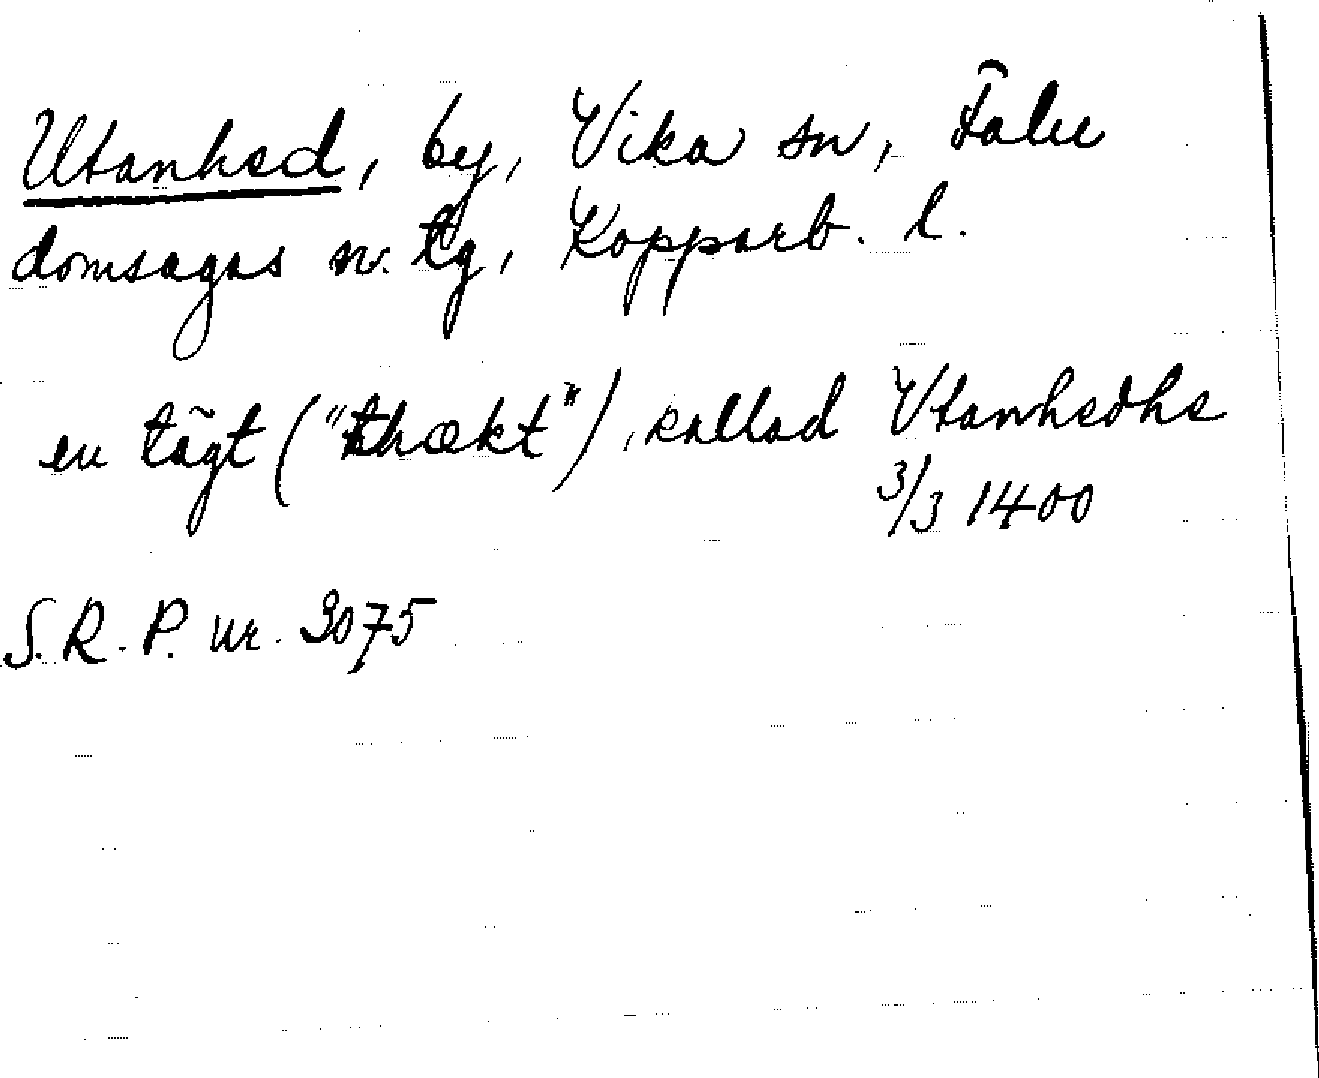 Utanhed, by, Vika sn, Falu
domsagas n. tg, Kopparb. l.
en tägt ("thækt"), kallad Vtanhedhe
3/3 1400
S.R.P. nr. 3075